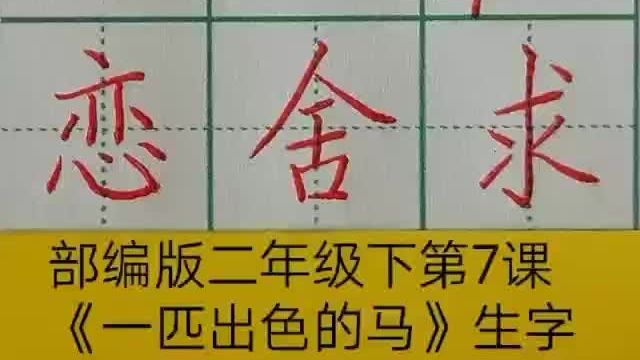 恋舍求
部编版二年级下第7课
《一匹出色的马》生字